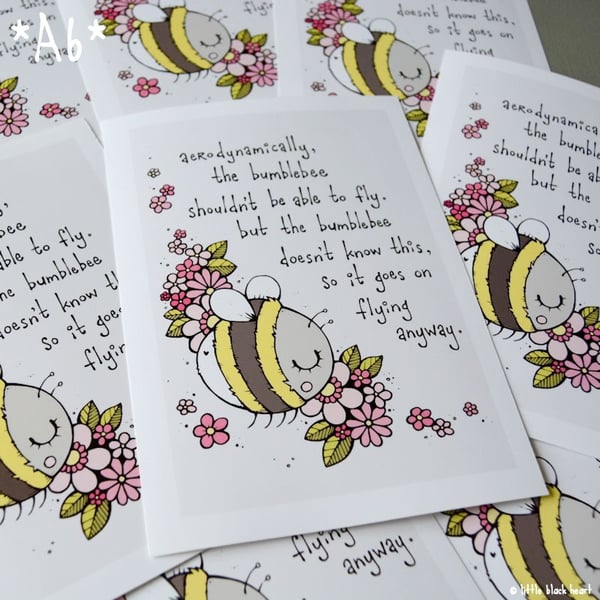 *A6*
flying
anyway.
doesn't know this,
so it goes on
flying
aerodynamically,
the bumblebee
shouldn't be able to fly.
but the bumblebee
doesn't know this,
so it goes on
flying
anyway.
able to fly.
the bumblebee
doesn't know
so it goes
flying
the
shouldn't be
but the
doesn't
so
flying
anyway.
© little black heart